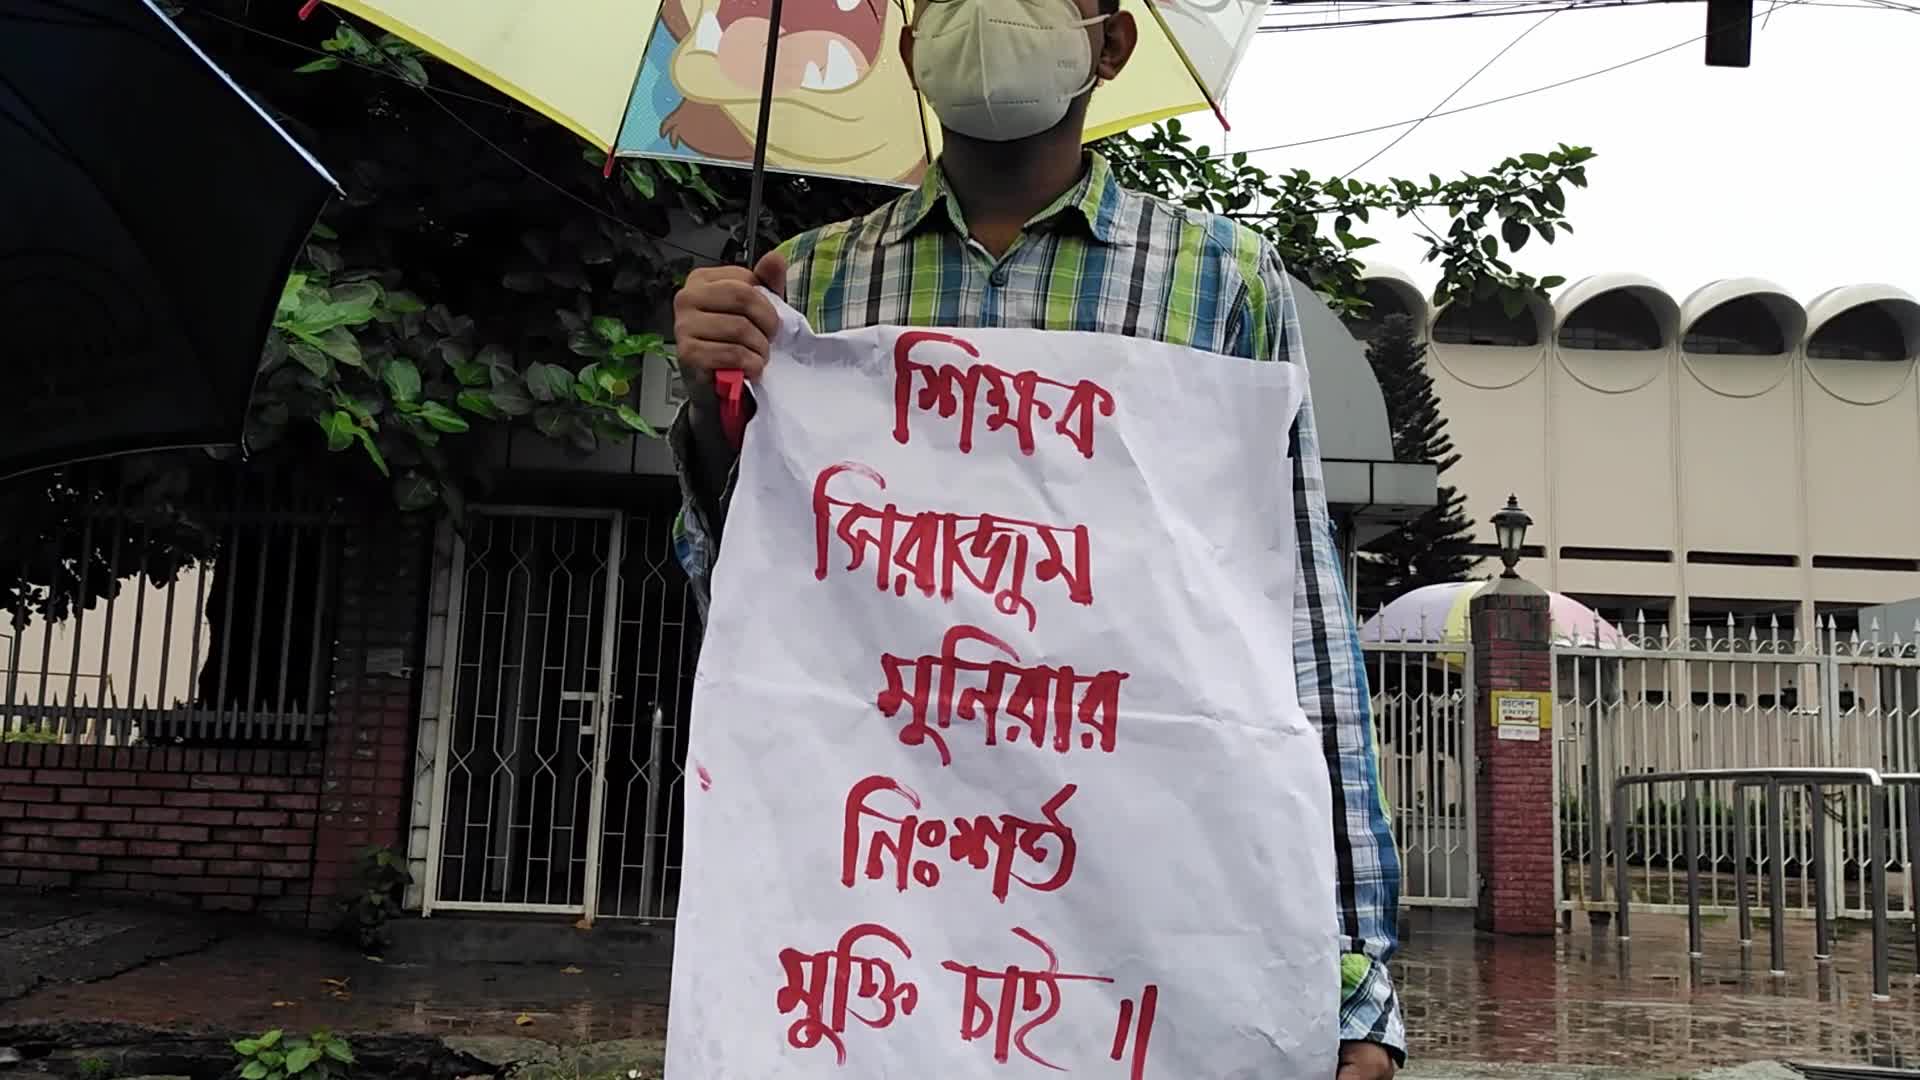 শিক্ষক
সিরাজুম
মুনিরার
নিঃশর্ত
মুক্তি চাই॥
প্রবেশ
ENTRY